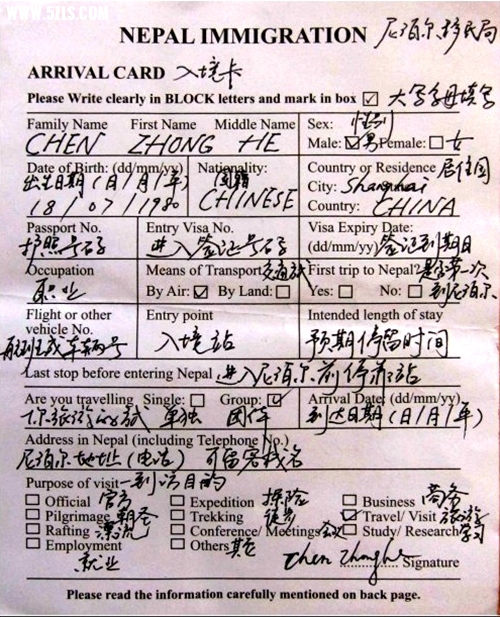 WWW.57LS.COM
NEPAL IMMIGRATION 尼泊尔移民局
ARRIVAL CARD 入境卡
Please Write clearly in BLOCK letters and mark in box ☑ 大写字母填写
Family Name First Name Middle Name
CHEN ZHONG HE
Sex: 性别
Male: ☑ 男 Female: ☐ 女
Date of Birth: (dd/mm/yy)
出生日期 (日/月/年)
18/07/1980
Nationality:
国籍
CHINESE
Country or Residence 居住国
City: Shanghai
Country: CHINA
Passport No.
护照号码
Entry Visa No.
进入签证号码
Visa Expiry Date:
(dd/mm/yy) 签证到期日
Occupation
职业
Means of Transport 交通方式
By Air: ☑ By Land: ☐
First trip to Nepal? 是否第一次
Yes: ☐ No: ☐ 到尼泊尔
Flight or other
vehicle No.
航班或车辆号
Entry point
入境站
Intended length of stay
预期停留时间
Last stop before entering Nepal 进入尼泊尔前停靠站
Are you travelling Single: ☐ Group: ☑
你旅游的方式 单独 团体
Arrival Date: (dd/mm/yy)
到达日期 (日/月/年)
Address in Nepal (including Telephone No.)
尼泊尔地址 (电话) 可留客栈名
Purpose of visit 到访目的
☐ Official 官方 ☐ Expedition 探险 ☐ Business 商务
☐ Pilgrimage 朝圣 ☐ Trekking 徒步 ☑ Travel/ Visit 旅游
☐ Rafting 漂流 ☐ Conference/ Meetings 会议 ☐ Study/ Research 学习
☐ Employment ☐ Others 其它
就业
Chen Zhonghe
Signature
Please read the information carefully mentioned on back page.